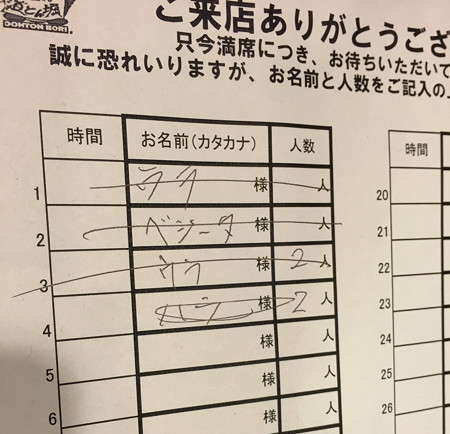 DOHTON BORI
ご来店ありがとうござ
只今満席につき、お待ちいただいて
誠に恐れいりますが、お名前と人数をご記入の
時間 お名前(カタカナ) 人数 時間
1 ララ 様 人 20
2 ベジータ 様 人 21
3 様 2人 22
4 様 2人 23
5 様 人 24
6 様 人 25
様 人 26